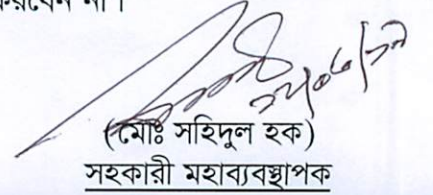 করবেন না।
(মোঃ সহিদুল হক)
সহকারী মহাব্যবস্থাপক